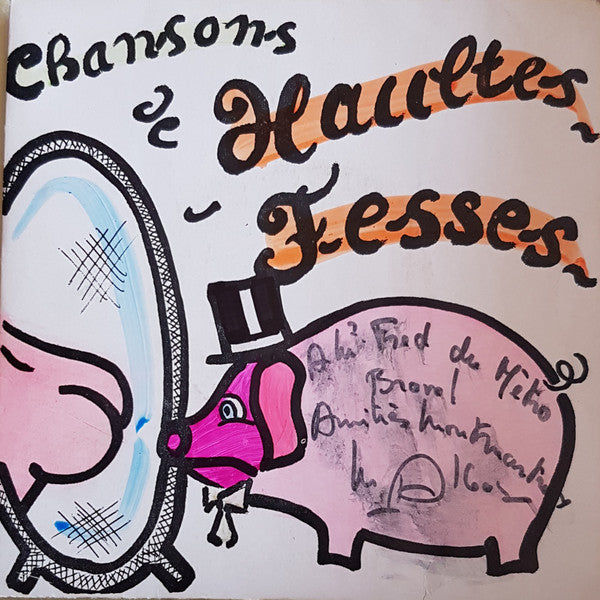 Chansons
de
Haultes
Fesses
A Mr Fred du Métro
Bravo!
Amitiés montmartroises